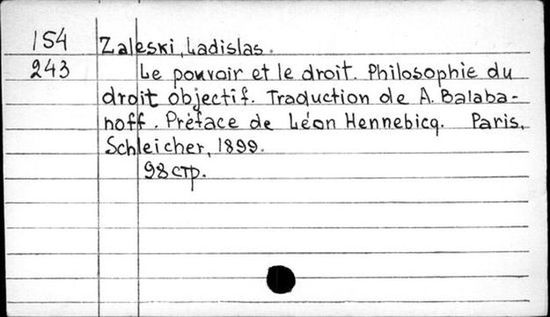 154 Zaleski, Ladislas.
243 Le pouvoir et le droit. Philosophie du
droit objectif. Traduction de A. Balaba-
noff. Préface de Léon Hennebicq. Paris,
Schleicher, 1899.
98 стр.